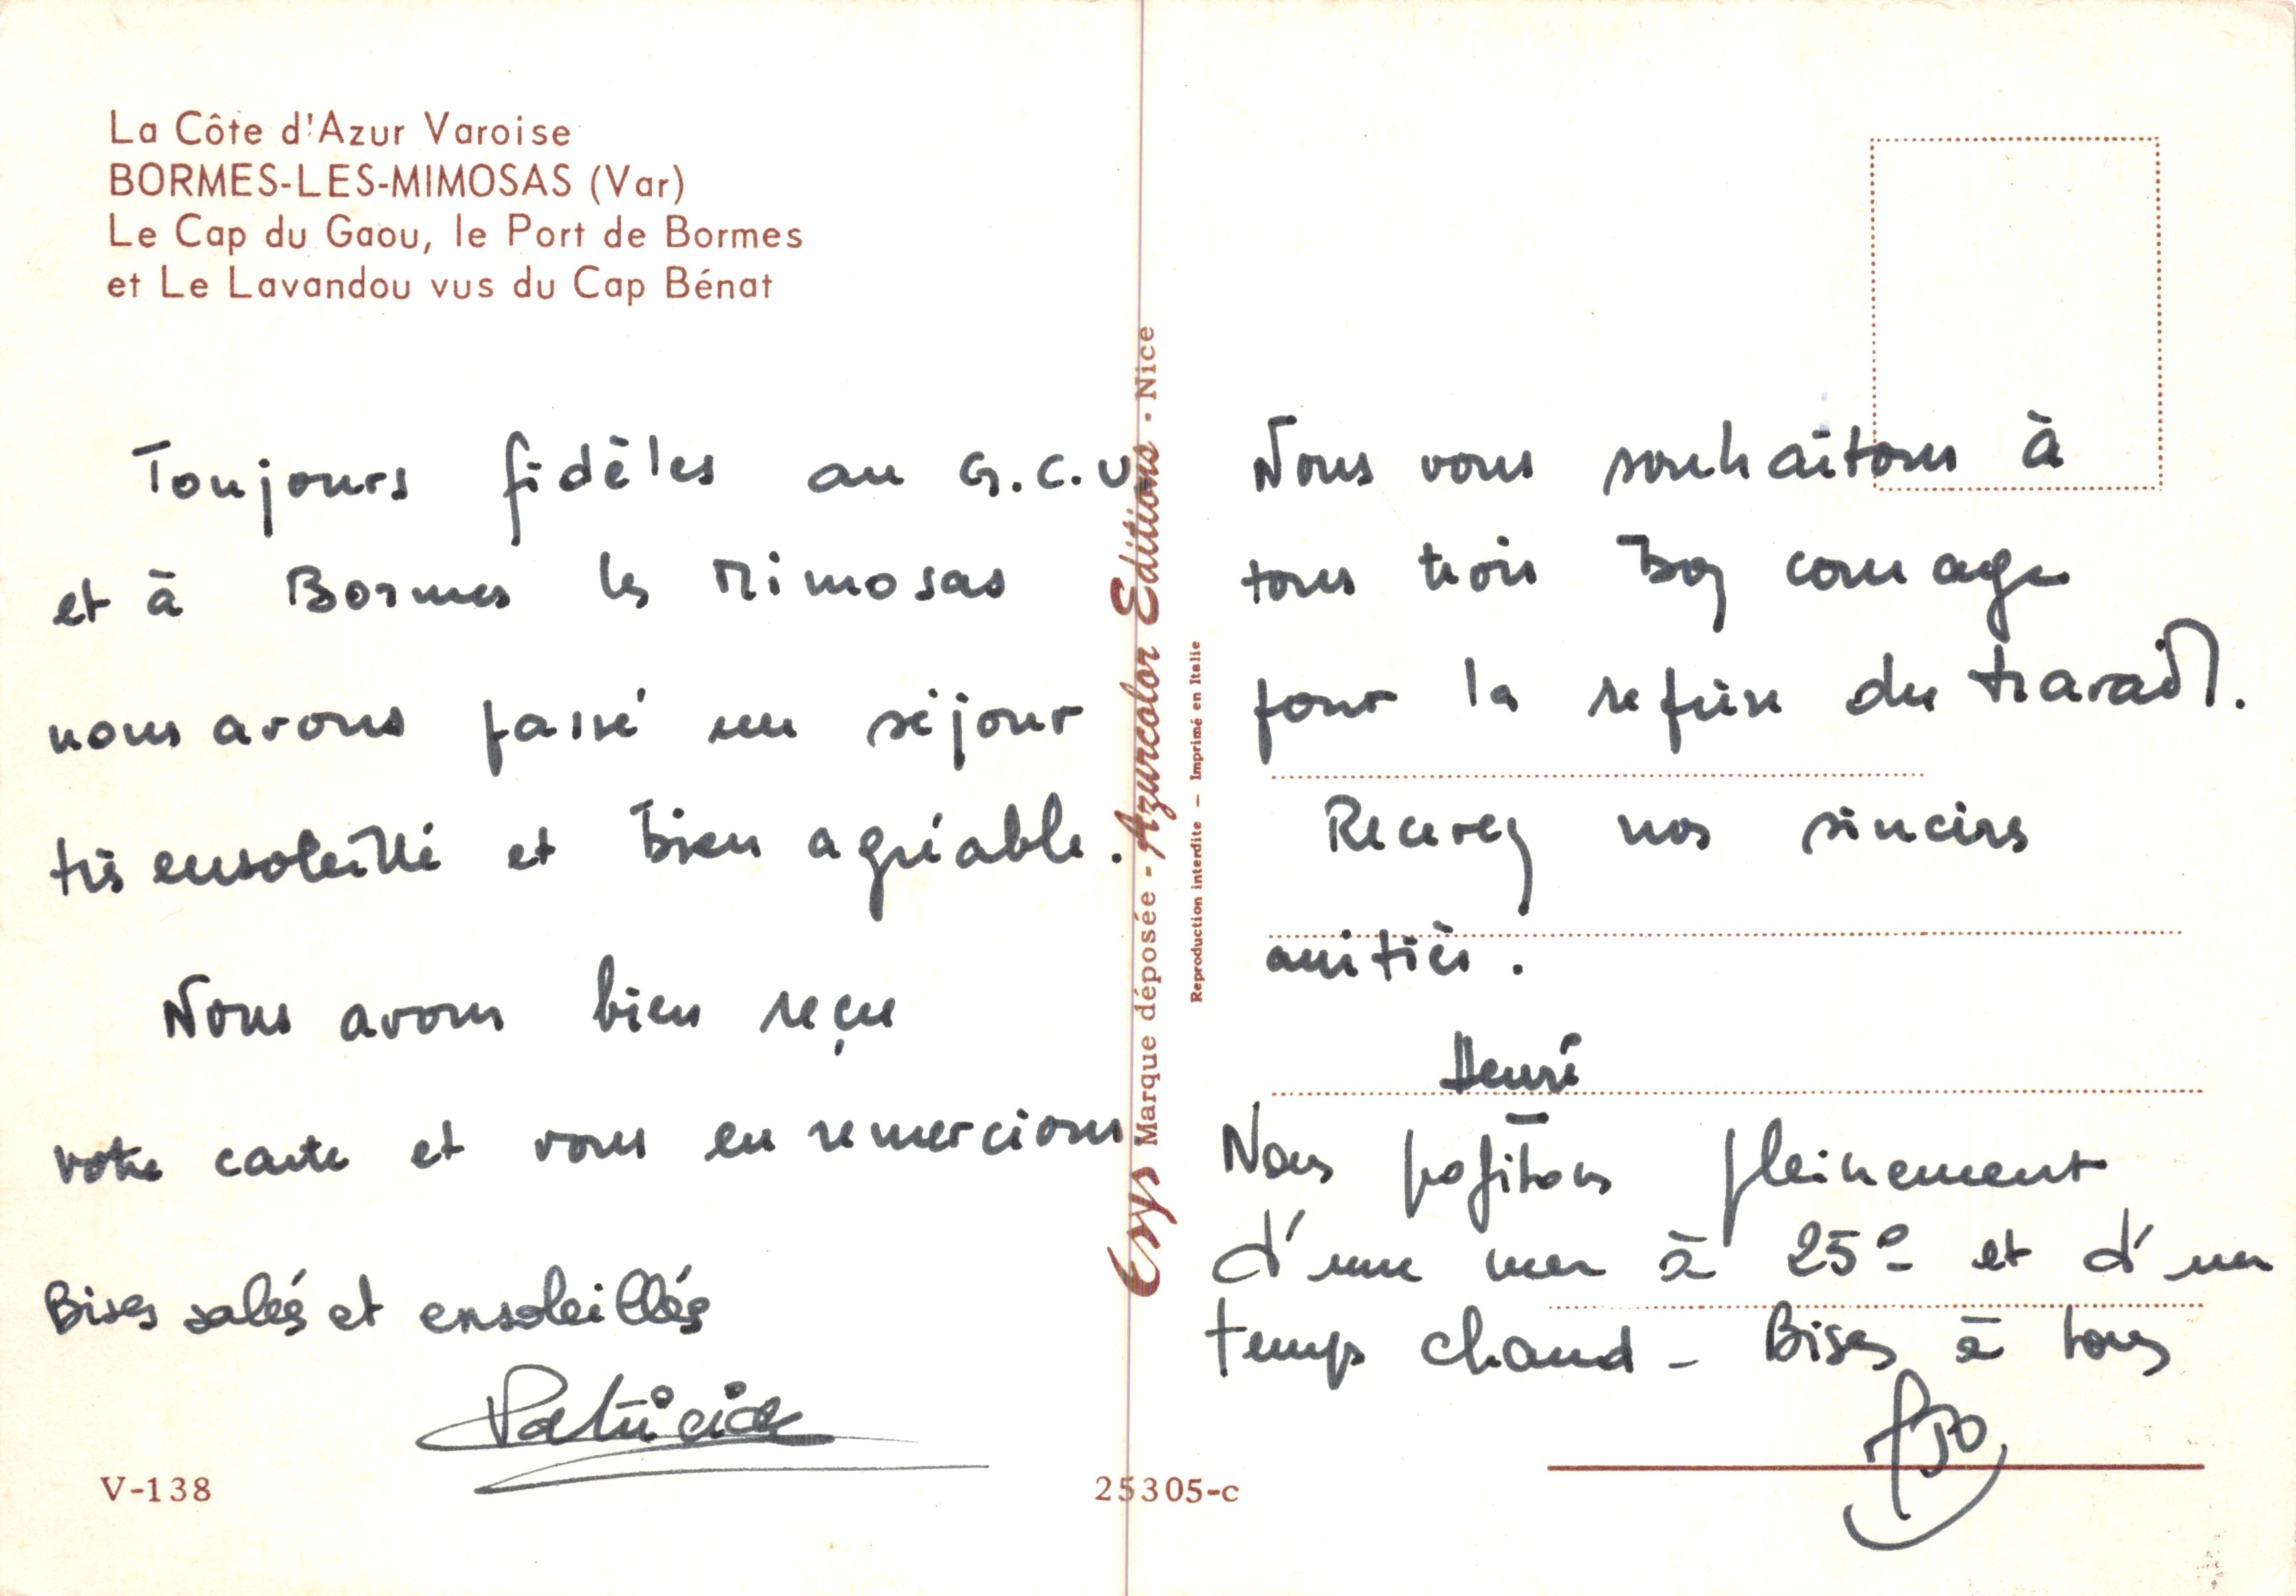 La Côte d'Azur Varoise
BORMES-LES-MIMOSAS (Var)
Le Cap du Gaou, le Port de Bormes
et Le Lavandou vus du Cap Bénat
Toujours fidèles au G.C.U
et à Bormes les Mimosas
nous avons passé un séjour
très ensoleillé et bien agréable.
Nous avons bien reçu
votre carte et vous en remercions
Bises salés et ensoleillés
Patricia
V-138
Erys Marque déposée - Azurcolor Editions - Nice
Reproduction interdite — Imprimé en Italie
25305-c
Nous vous souhaitons à
tous trois Bon courage
pour la reprise du travail.
Recevez nos sincères
amitiés.
Henri
Nous profitons pleinement
d'une mer à 25° et d'un
temps chaud - Bises à tous